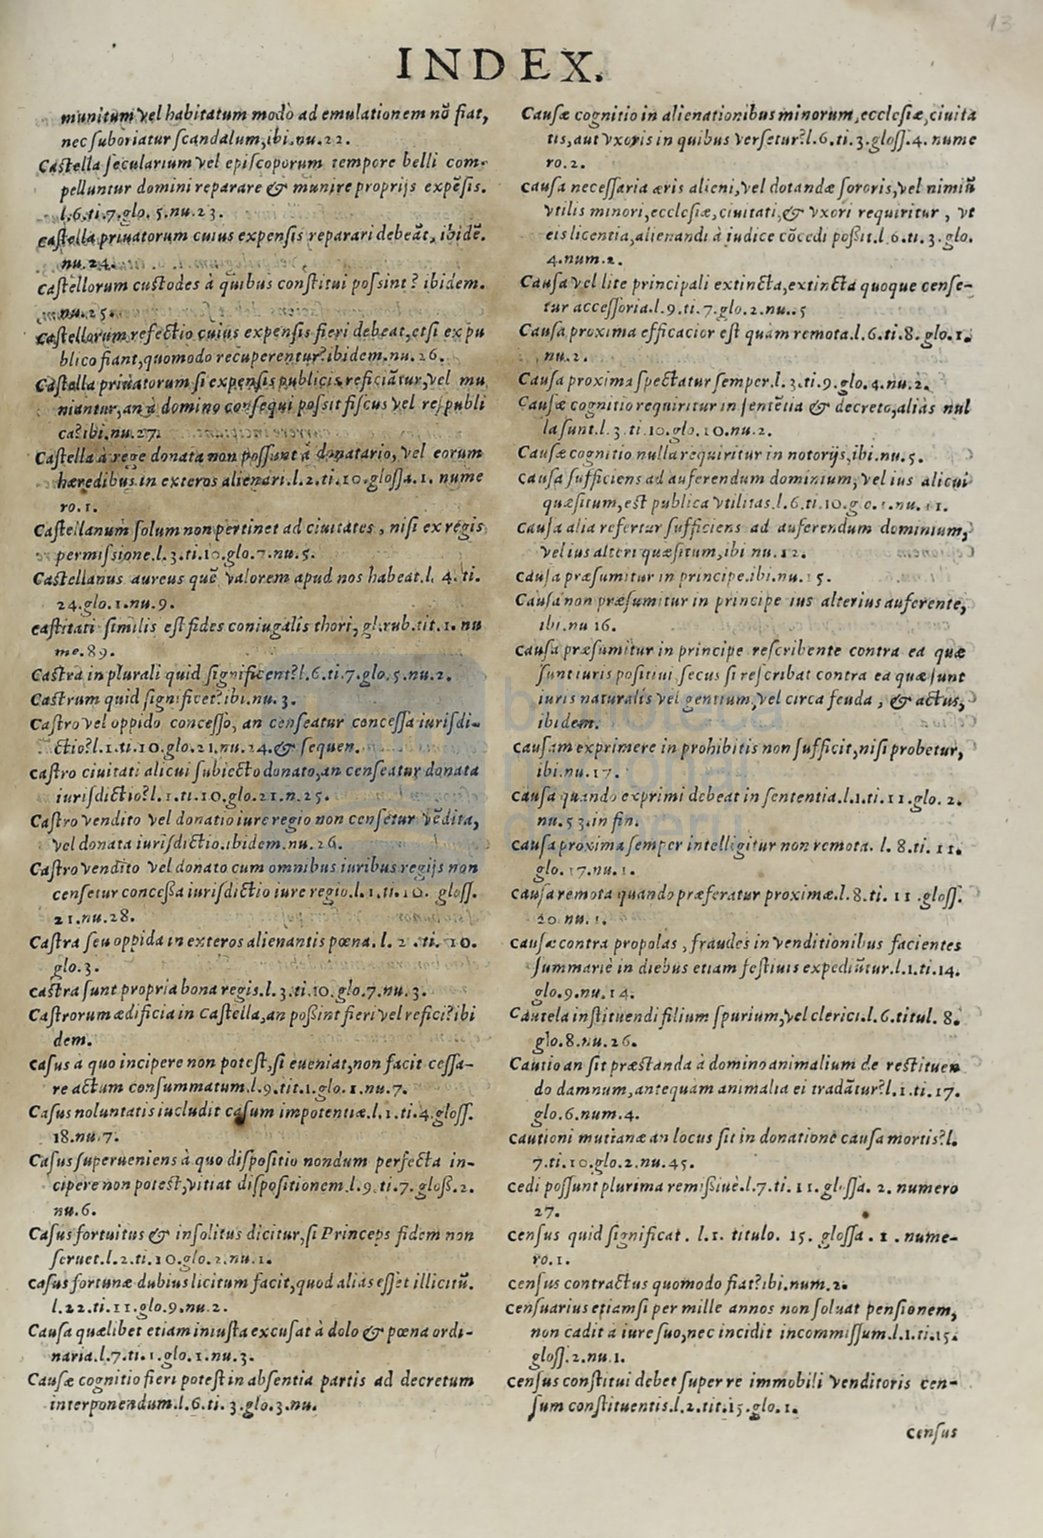 13
INDEX.
munitum vel habitatum modò ad emulationem nõ fiat,
nec suboriatur scandalum, ibi. nu. 22.
Castella secularium vel episcoporum tempore belli com-
pelluntur domini reparare & munire proprijs expẽsis.
l. 6. ti. 7. glo. 5. nu. 23.
castella priuatorum cuius expensis reparari debeãt, ibidẽ.
nu. 24.
castellorum custodes à quibus constitui possint? ibidem.
nu. 25.
castellorum refectio cuius expensis fieri debeat, etsi ex pu
blico fiant, quomodo recuperentur? ibidem. nu. 26.
Castella priuatorum si expensis publicis reficiãtur, vel mu
niantur, an à domino consequi possit fiscus vel respubli
ca? ibi. nu. 27.
Castella à rege donata non possunt à donatario, vel eorum
hæredibus in exteros alienari. l. 2. ti. 10. glossa. 1. nume
ro. 1.
Castellanum solum non pertinet ad ciuitates, nisi ex regis
permissione. l. 3. ti. 10. glo. 7. nu. 5.
Castellanus aureus quẽ valorem apud nos habeat. l. 4. ti.
24. glo. 1. nu. 9.
castitati similis est fides coniugalis thori, gl. rub. tit. 1. nu
me. 89.
Castra in plurali quid significent? l. 6. ti. 7. glo. 5. nu. 2.
Castrum quid significet? ibi. nu. 3.
Castro vel oppido concesso, an censeatur concessa iurisdi-
ctio? l. 1. ti. 10. glo. 21. nu. 24. & sequen.
castro ciuitati alicui subiecto donato, an censeatur donata
iurisdictio? l. 1. ti. 10. glo. 21. n. 25.
Castro vendito vel donatio iure regio non censetur vẽdita,
vel donata iurisdictio. ibidem. nu. 26.
Castro vendito vel donato cum omnibus iuribus regijs non
censetur concessa iurisdictio iure regio. l. 1. ti. 10. gloss.
21. nu. 28.
Castra seu oppida in exteros alienantis pœna. l. 2. ti. 10.
glo. 3.
castra sunt propria bona regis. l. 3. ti. 10. glo. 7. nu. 3.
Castrorum ædificia in Castella, an possint fieri vel refici? ibi
dem.
casus à quo incipere non potest, si eueniat, non facit cessa-
re actum consummatum. l. 9. tit. 1. glo. 1. nu. 7.
Casus noluntatis includit casum impotentiæ. l. 1. ti. 4. gloss.
18. nu. 7.
Casus superueniens à quo dispositio nondum perfecta in-
cipere non potest, vitiat dispositionem. l. 9. ti. 7. gloss. 2.
nu. 6.
Casus fortuitus & insolitus dicitur, si Princeps fidem non
seruet. l. 2. ti. 10. glo. 2. nu. 1.
casus fortunæ dubius licitum facit, quod aliàs esset illicitũ.
l. 22. ti. 11. glo. 9. nu. 2.
Causa quælibet etiam iniusta excusat à dolo & pœna ordi-
naria. l. 7. ti. 1. glo. 1. nu. 3.
Causæ cognitio fieri potest in absentia partis ad decretum
interponendum. l. 6. ti. 3. glo. 3. nu.
Causæ cognitio in alienationibus minorum, ecclesiæ, ciuita
tis, aut vxoris in quibus versetur? l. 6. ti. 3. gloss. 4. nume
ro. 2.
causa necessaria æris alieni, vel dotandæ sororis, vel nimiũ
vtilis minori, ecclesiæ, ciuitati, & vxori requiritur, vt
eis licentia, alienandi à iudice cõcedi possit. l. 6. ti. 3. glo.
4. num. 2.
Causa vel lite principali extincta, extincta quoque cense-
tur accessoria. l. 9. ti. 7. glo. 2. nu. 5
Causa proxima efficacior est quàm remota. l. 6. ti. 8. glo. 1.
nu. 2.
Causa proxima spectatur semper. l. 3. ti. 9. glo. 4. nu. 2.
Causæ cognitio requiritur in sentẽtia & decreto, aliàs nul
la sunt. l. 3. ti. 10. glo. 10. nu. 2.
Causæ cognitio nulla requiritur in notorijs, ibi. nu. 5.
causa sufficiens ad auferendum dominium, vel ius alicui
quæsitum, est publica vtilitas. l. 6. ti. 10. g o. 1. nu. 11.
causa alia refertur sufficiens ad auferendum dominium,
vel ius alteri quæsitum, ibi nu. 12.
causa præsumitur in principe. ibi. nu. 15.
Causa non præsumitur in principe ius alterius auferente,
ibi. nu 16.
causa præsumitur in principe rescribente contra ea quæ
sunt iuris positiui secus si rescribat contra ea quæ sunt
iuris naturalis vel gentium, vel circa feuda, & actus,
ibidem.
causam exprimere in prohibitis non sufficit, nisi probetur,
ibi. nu. 17.
causa quando exprimi debeat in sententia. l. 1. ti. 11. glo. 2.
nu. 53. in fin.
causa proxima semper intelligitur non remota. l. 8. ti. 11.
glo. 17. nu. 1.
causa remota quando præferatur proximæ. l. 8. ti. 11. gloss.
20. nu. 1.
causæ contra propolas, fraudes in venditionibus facientes
summariè in diebus etiam festiuis expediũtur. l. 1. ti. 14.
glo. 9. nu. 14.
Cautela instituendi filium spurium, vel clerici. l. 6. titul. 8.
glo. 8. nu. 26.
Cautio an sit præstanda à domino animalium de restituen
do damnum, antequàm animalia ei tradãtur? l. 1. ti. 17.
glo. 6. num. 4.
cautioni mutianæ an locus sit in donatione causa mortis? l.
7. ti. 10. glo. 2. nu. 45.
cedi possunt plurima remissiuè. l. 7. ti. 11. glossa. 2. numero
27.
census quid significat. l. 1. titulo. 15. glossa. 1. nume-
ro. 1.
census contractus quomodo fiat? ibi. num. 2.
censuarius etiamsi per mille annos non soluat pensionem,
non cadit à iure suo, nec incidit incommissum. l. 1. ti. 15.
gloss. 2. nu. 1.
census constitui debet super re immobili venditoris cen-
sum constituentis. l. 2. tit. 15. glo. 1.
census